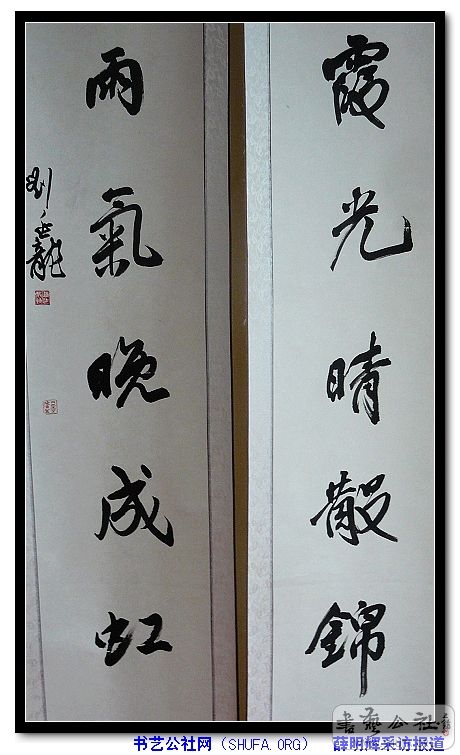 霞光晴散錦
雨氣晚成虹
書藝公社
书艺公社网（SHUFA.ORG） 薛明辉采访报道